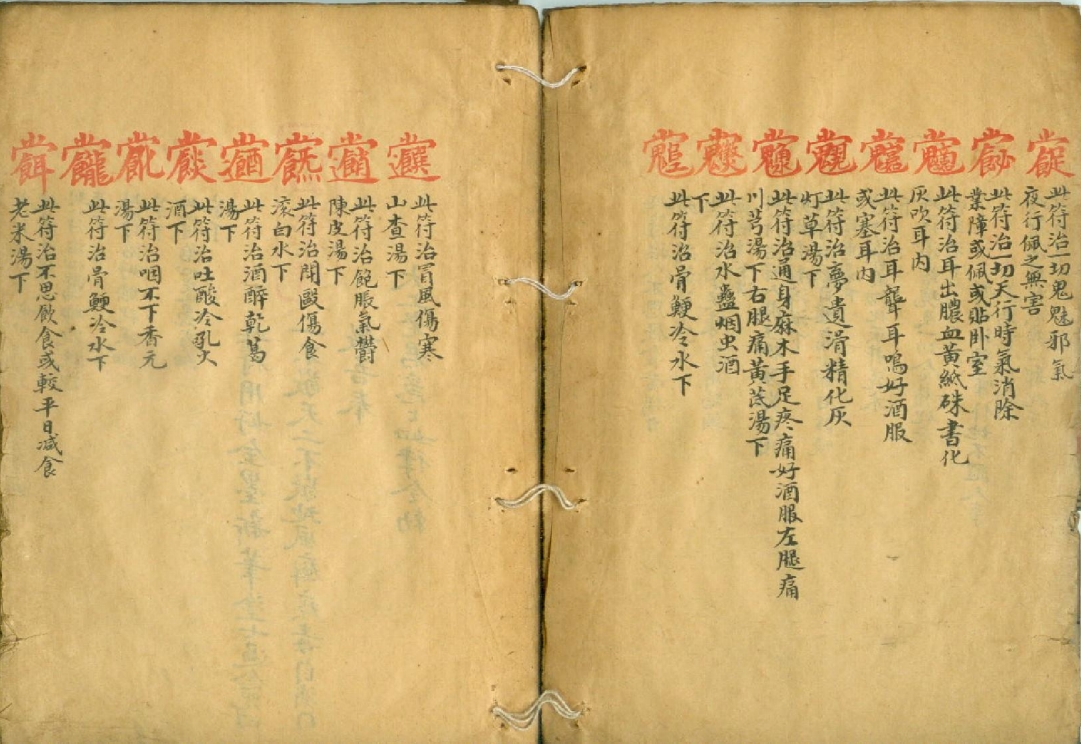 此符治一切鬼魅邪氣
夜行佩之無害
此符治一切天行時氣消除
業障或佩或貼卧室
此符治耳出膿血黄紙硃書化
灰吹耳内
此符治耳聾耳鳴好酒服
或塞耳内
此符治夢遺滑精化灰
灯草湯下
此符治通身麻木手足疼痛好酒服左腿痛
川芎湯下右腿痛黄茋湯下
此符治水蠱烟虫酒
下
此符治骨鯁冷水下
此符治冐風傷寒
山查湯下
此符治飽脹氣欝
陳皮湯下
此符治閗毆傷食
滚白水下
此符治酒醉乾葛
湯下
此符治吐酸冷乳火
酒下
此符治咽不下香元
湯下
此符治骨鯁冷水下
此符治不思飲食或較平日减食
老米湯下